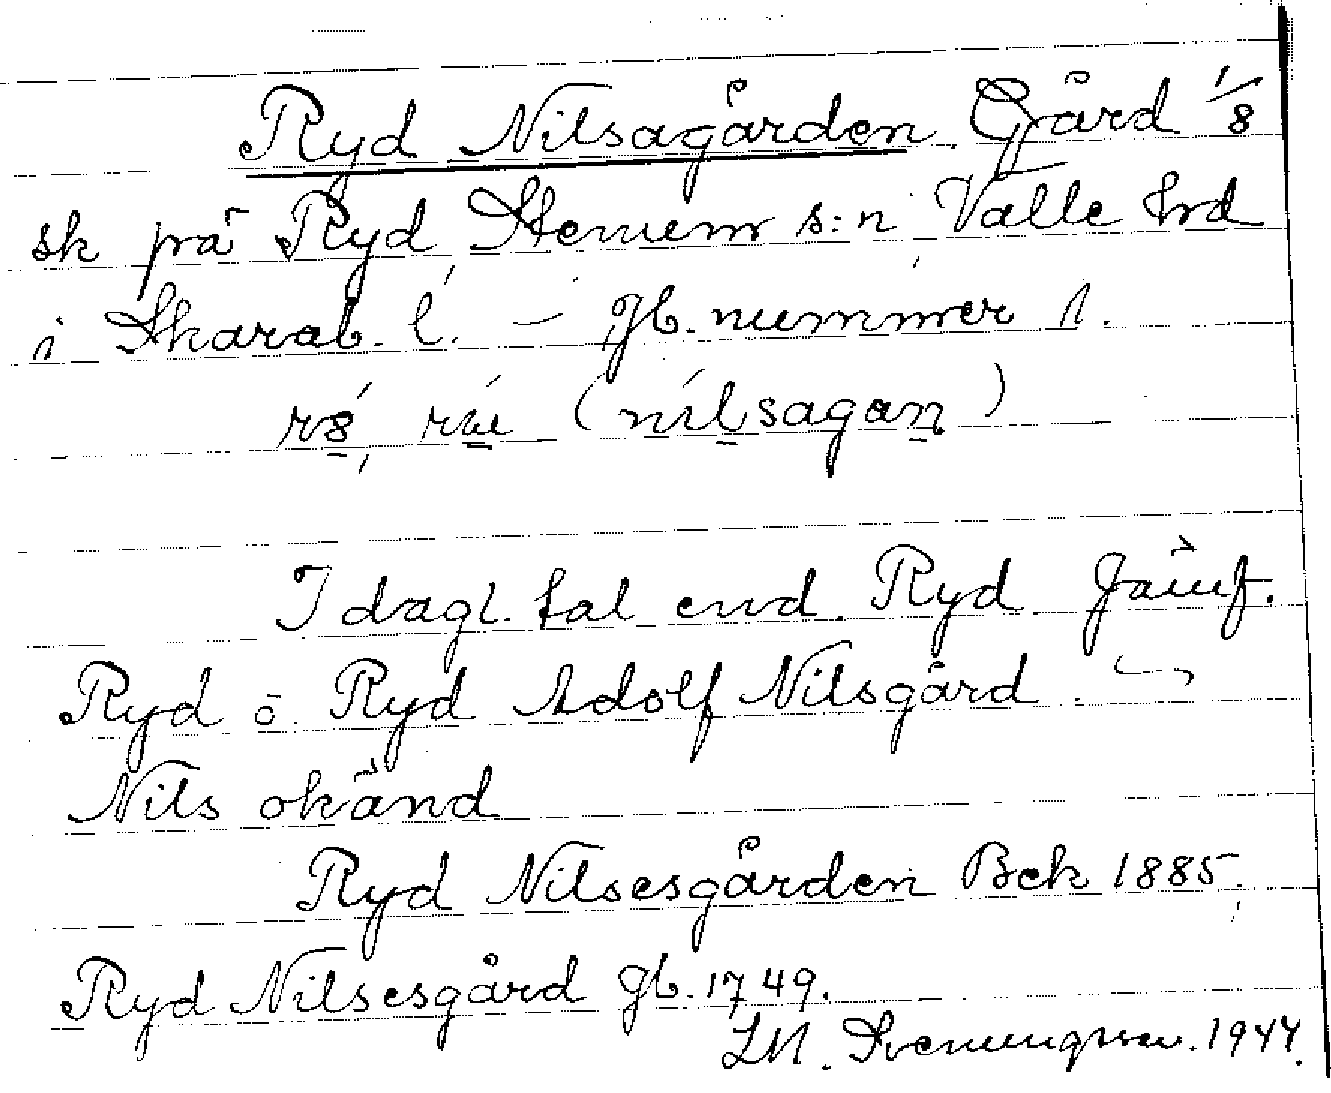 Ryd Nilsagården Gård 1/8
sk på Ryd Stenum s:n Valle hrd
i Skarab. l. – Jb. nummer 1.
(nilsagan)
I dagl. tal end. Ryd Jämf.
Ryd o. Ryd Adolf Nilsgård.
Nils okänd
Ryd Nilsesgården Bek 1885.
Ryd Nilsesgård Jb. 1749.
1944.